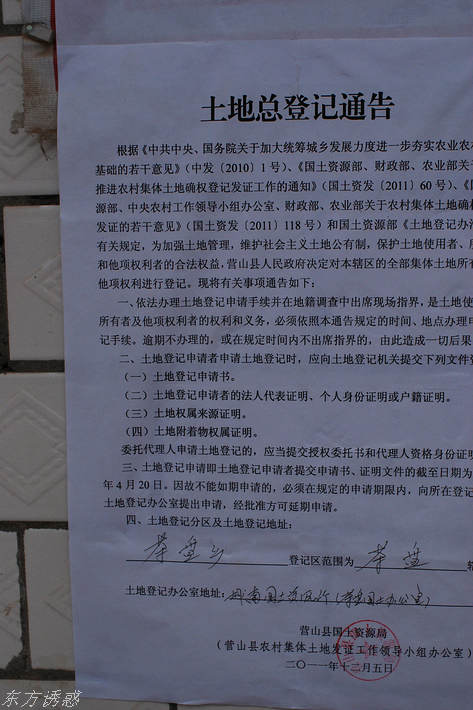 土地总登记通告
根据《中共中央、国务院关于加大统筹城乡发展力度进一步夯实农业农村
基础的若干意见》（中发〔2010〕1号）、《国土资源部、财政部、农业部关于
推进农村集体土地确权登记发证工作的通知》（国土资发〔2011〕60号）、《
源部、中央农村工作领导小组办公室、财政部、农业部关于农村集体土地确权
发证的若干意见》（国土资发〔2011〕118号）和国土资源部《土地登记办法
有关规定，为加强土地管理，维护社会主义土地公有制，保护土地使用者、所
和他项权利者的合法权益，营山县人民政府决定对本辖区的全部集体土地所有
他项权利进行登记。现将有关事项通告如下：
一、依法办理土地登记申请手续并在地籍调查中出席现场指界，是土地使
所有者及他项权利者的权利和义务，必须依照本通告规定的时间、地点办理申
记手续。逾期不办理的，或在规定时间内不出席指界的，由此造成一切后果
二、土地登记申请者申请土地登记时，应向土地登记机关提交下列文件资
（一）土地登记申请书。
（二）土地登记申请者的法人代表证明、个人身份证明或户籍证明。
（三）土地权属来源证明。
（四）土地附着物权属证明。
委托代理人申请土地登记的，应当提交授权委托书和代理人资格身份证明
三、土地登记申请即土地登记申请者提交申请书、证明文件的截至日期为
年4月20日。因故不能如期申请的，必须在规定的申请期限内，向所在登记
土地登记办公室提出申请，经批准方可延期申请。
四、土地登记分区及土地登记地址：
茶盘乡 登记区范围为 茶盘 辖
土地登记办公室地址：
营山县国土资源局
（营山县农村集体土地发证工作领导小组办公室）
二〇一一年十二月五日
东方诱惑